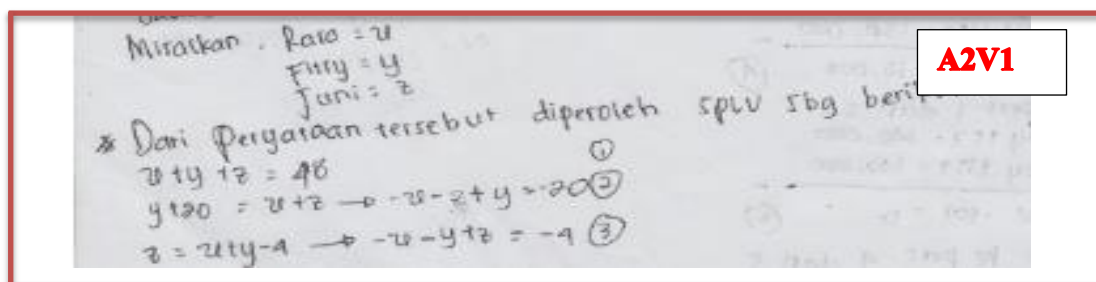 Misalkan. Raro = x
Fitry = y
Juni = z
A2V1
* Dari Peryataan tersebut diperoleh SPLV sbg
x + y + z = 48 ①
y + 20 = x + z → -x - z + y = -20 ②
z = x + y - 4 → -x - y + z = -4 ③